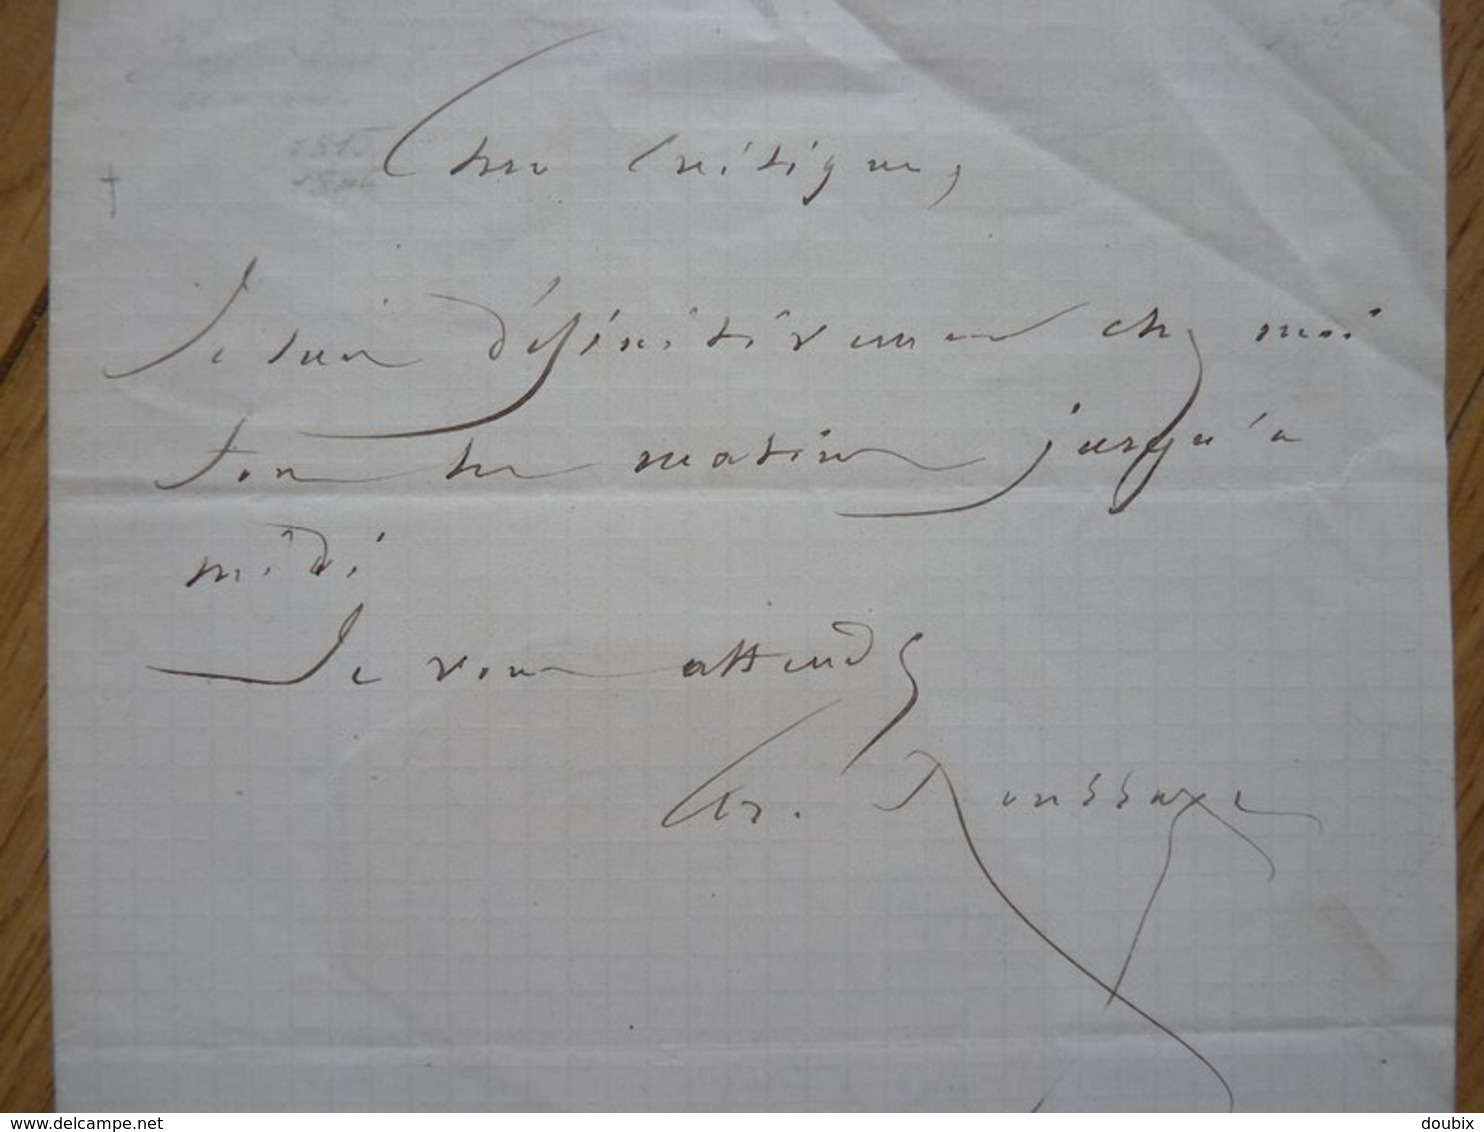 Cher Critique,
Je suis définitivement chez moi
tous les matins jusqu'à
midi
Je vous attends
Ar. Houssaye
1815
www.delcampe.net
doubix